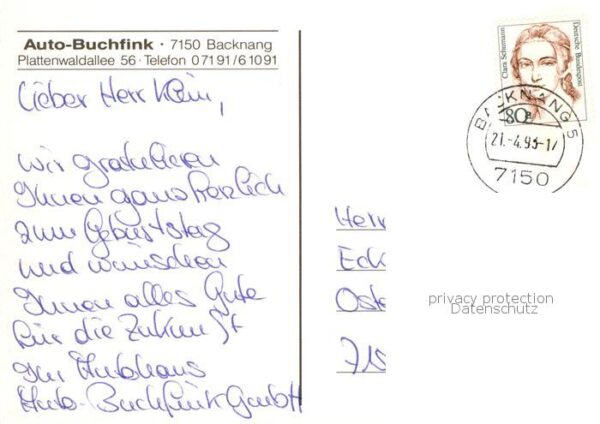 Auto-Buchfink · 7150 Backnang
Plattenwaldallee 56 · Telefon 07191/61091
Lieber Herr Klein,
wir gratulieren
Ihnen ganz herzlich
zum Geburtstag
und wünschen
Ihnen alles Gute
für die Zukunft
Ihr Autohaus
Auto-Buchfink GmbH
Clara Schumann
Deutsche Bundespost
80
BACKNANG 5
21.-4.93-17
7150
Herr
Eck
Oste
715
privacy protection
Datenschutz